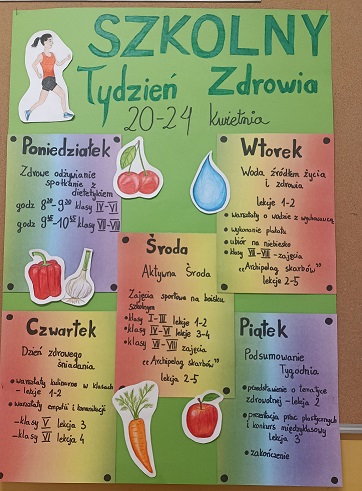 SZKOLNY
Tydzień Zdrowia
20-24 kwietnia
Poniedziałek
Zdrowe odżywianie
spotkanie z
dietetykiem
godz 8²⁰-9²⁰ klasy IV-VI
godz 9⁴⁵-10⁴⁵ klasy VII-VIII
Wtorek
Woda źródłem życia
i zdrowia
lekcje 1-2
• warsztaty o wodzie z wychowawcą
• wykonanie plakatu
• ubiór na niebiesko
• klasy VII-VIII - zajęcia
"Archipelag skarbów"
lekcje 2-5
Środa
Aktywna Środa
Zajęcia sportowe na boisku
szkolnym
• klasy I-III lekcje 1-2
• klasy IV-VI lekcje 3-4
• klasy VII-VIII zajęcia
"Archipelag skarbów"
lekcja 2-5
Czwartek
Dzień zdrowego
śniadania
• warsztaty kulinarne w klasach
- lekcje 1-2
• warsztaty empatii i komunikacji
- klasy V lekcja 3
- klasy VI lekcja 4
Piątek
Podsumowanie
Tygodnia
• przedstawienie o tematyce
zdrowotnej - lekcja 2
• prezentacja prac plastycznych
i konkurs międzyklasowy
lekcja 3
• zakończenie